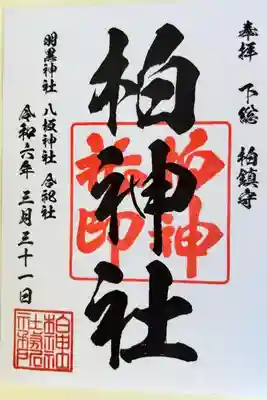 奉拝 下総 柏鎮守
柏神社
羽黒神社 八坂神社 合祀社
令和六年 三月三十一日
柏神
社印